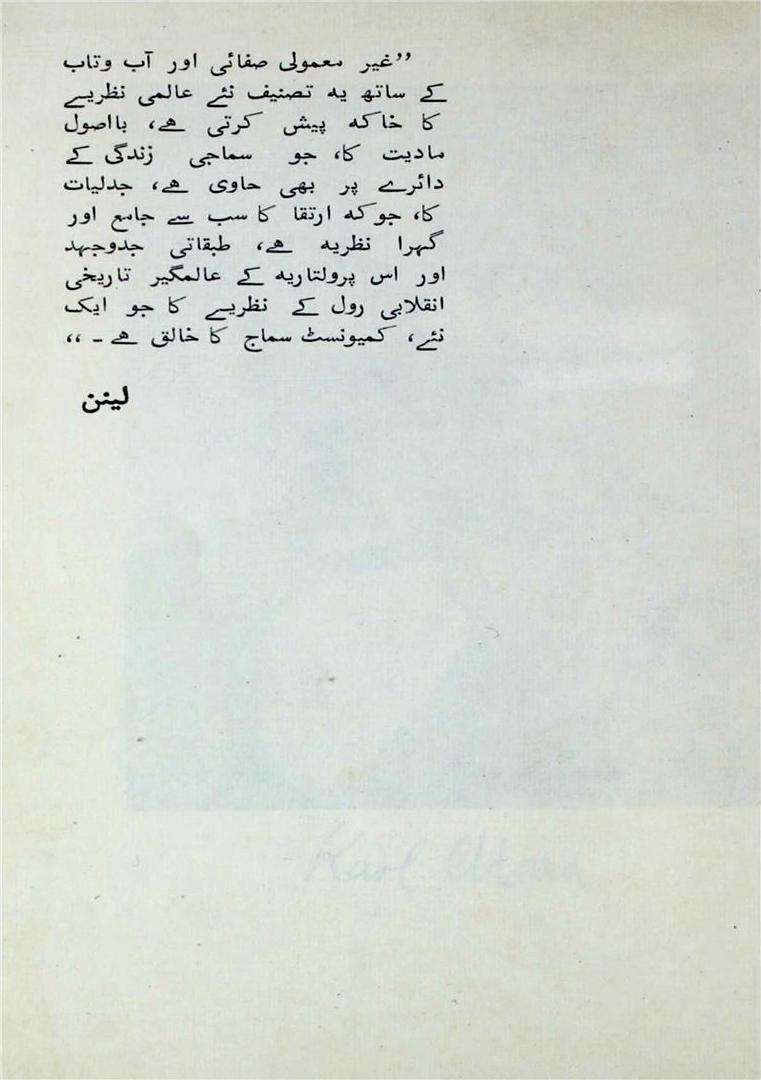 ”غیر معمولی صفائی اور آب وتاب
کے ساتھ یہ تصنیف نئے عالمی نظریے
کا خاکہ پیش کرتی ہے، بااصول
مادیت کا، جو سماجی زندگی کے
دائرے پر بھی حاوی ہے، جدلیات
کا، جوکہ ارتقا کا سب سے جامع اور
گہرا نظریہ ہے، طبقاتی جدوجہد
اور اس پرولتاریہ کے عالمگیر تاریخی
انقلابی رول کے نظریے کا جو ایک
نئے، کمیونسٹ سماج کا خالق ہے ۔ “
لینن
Karl Marx